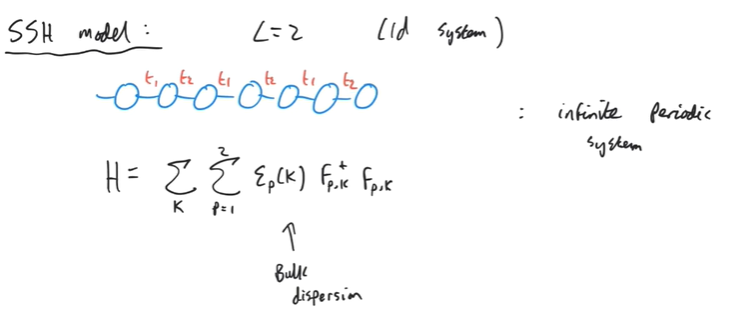 SSH model: L=2 (1d system)
t₁ t₂ t₁ t₂ t₁ t₂
: infinite periodic
system
H = Σ_K Σ_{p=1}^{2} ε_p(K) F_{p,K}^† F_{p,K}
↑
Bulk
dispersion